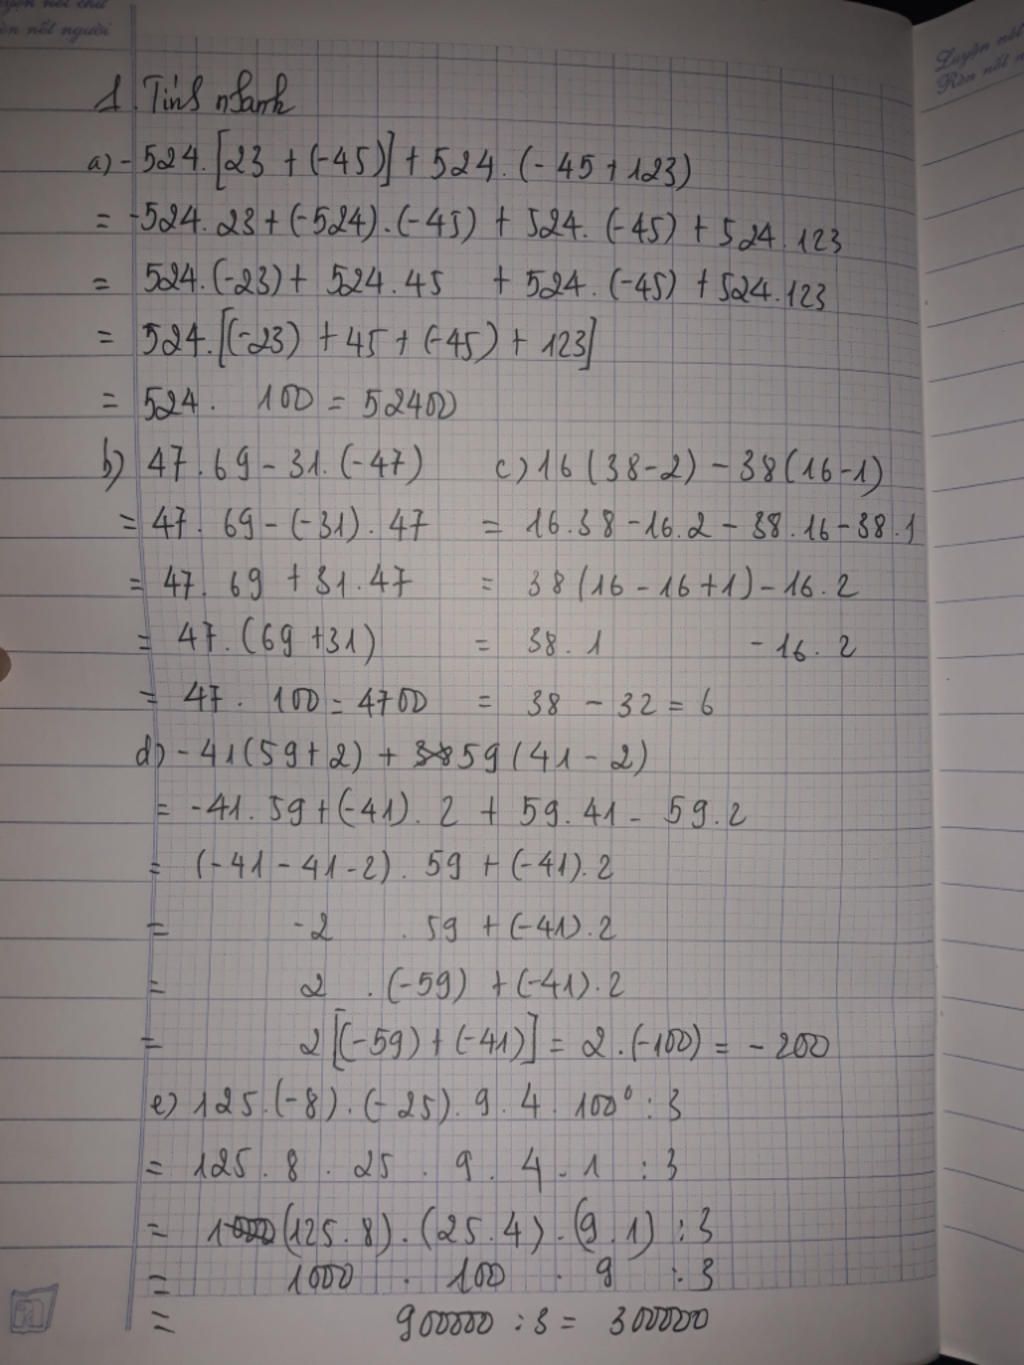 Luyện nét chữ
Rèn nết người
Luyện nét
Rèn nết n
1 Tính nhanh
a) -524.[23 + (-45)] + 524.(-45+123)
= -524.23+(-524).(-45) + 524.(-45) + 524.123
= 524.(-23)+ 524.45 + 524.(-45) + 524.123
= 524.[(-23) + 45 + (-45) + 123]
= 524. 100 = 52400
b) 47.69 - 31.(-47)
= 47. 69 - (-31). 47
= 47. 69 + 31.47
= 47.(69+31)
= 47. 100 = 4700
c) 16(38-2) - 38(16-1)
= 16.38 - 16.2 - 38.16 - 38.1
= 38(16 - 16+1) - 16.2
= 38.1 - 16.2
= 38 - 32 = 6
d) -41(59+2) + 59(41-2)
= -41.59+(-41).2 + 59.41 - 59.2
= (-41 - 41-2). 59 + (-41).2
= -2 . 59 + (-41).2
= 2 .(-59) + (-41).2
= 2[(-59) + (-41)] = 2.(-100) = -200
e) 125.(-8).(-25).9.4.100⁰ : 3
= 125.8.25.9.4.1 : 3
= (125.8).(25.4).(9.1) : 3
= 1000 . 100 . 9 : 3
= 900000 : 3 = 300000